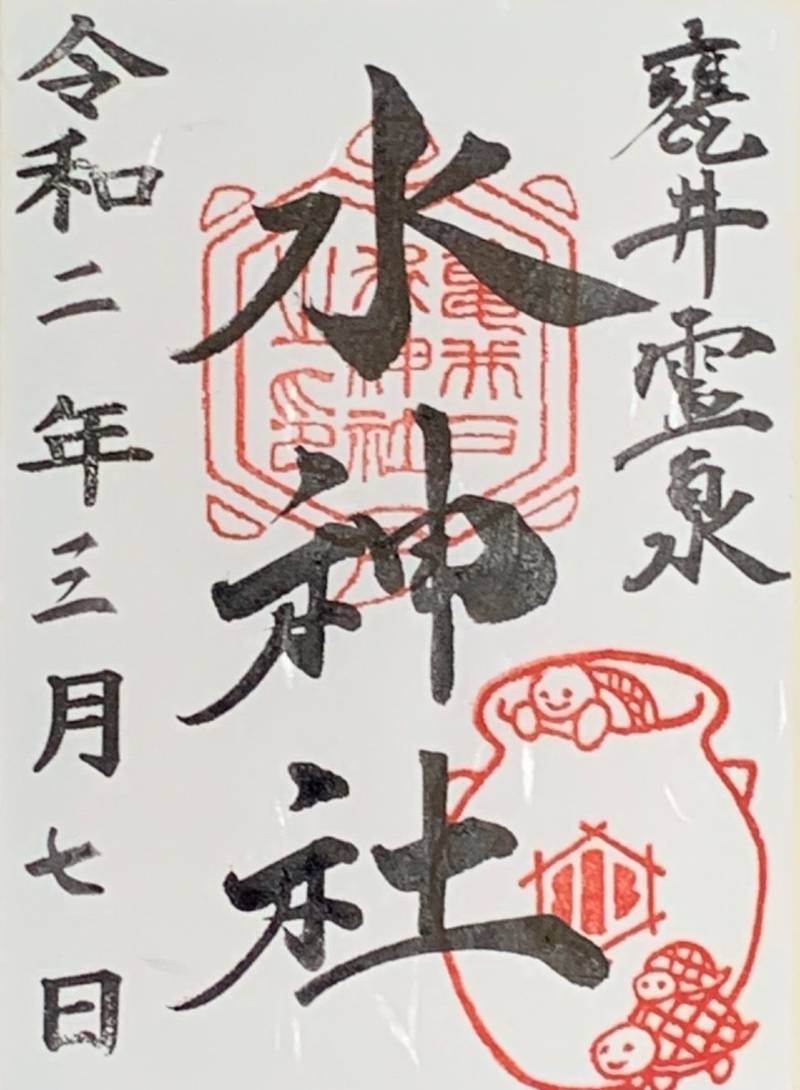 甕井霊泉
水神社
令和二年三月七日
亀井戸
水神社
之印